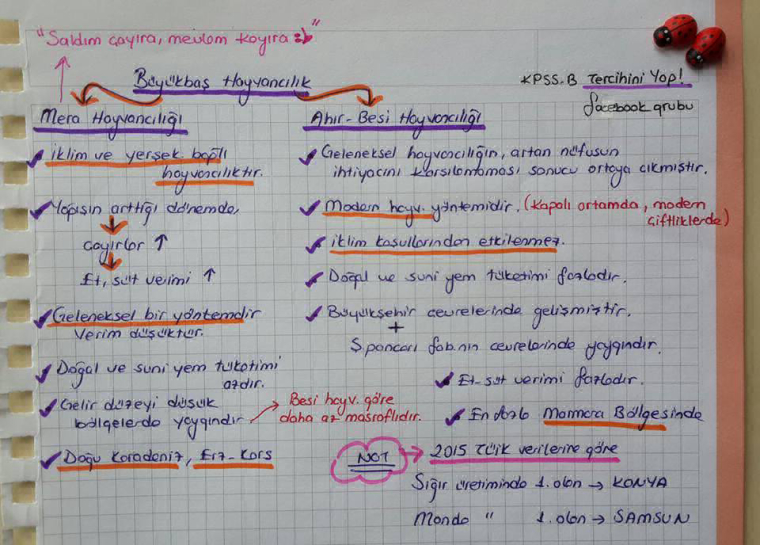 "Saldım çayıra, mevlam kayıra :)"
Büyükbaş Hayvancılık
KPSS-B Tercihini Yap!
facebook grubu
Mera Hayvancılığı
✓ İklim ve yerşek. bağlı
hayvancılıktır.
✓ Yağışın arttığı dönemde,
çayırlar ↑
Et, süt verimi ↑
✓ Geleneksel bir yöntemdir
verim düşüktür.
✓ Doğal ve suni yem tüketimi
azdır.
✓ Gelir düzeyi düşük
bölgelerde yaygındır → Besi hayv. göre
daha az masraflıdır.
✓ Doğu Karadeniz, Erz-Kars
Ahır-Besi Hayvancılığı
✓ Geleneksel hayvancılığın, artan nüfusun
ihtiyacını karşılamaması sonucu ortaya çıkmıştır.
✓ Modern hayv. yöntemidir. (Kapalı ortamda, modern
çiftliklerde)
✓ İklim koşullarından etkilenmez.
✓ Doğal ve suni yem tüketimi fazladır.
✓ Büyükşehir çevrelerinde gelişmiştir.
+
Ş.pancarı fab.nın çevrelerinde yaygındır.
✓ Et-süt verimi fazladır.
✓ En fazla Marmara Bölgesinde
NOT → 2015 Tüik verilerine göre
Sığır üretiminde 1. olan → KONYA
Manda " 1. olan → SAMSUN